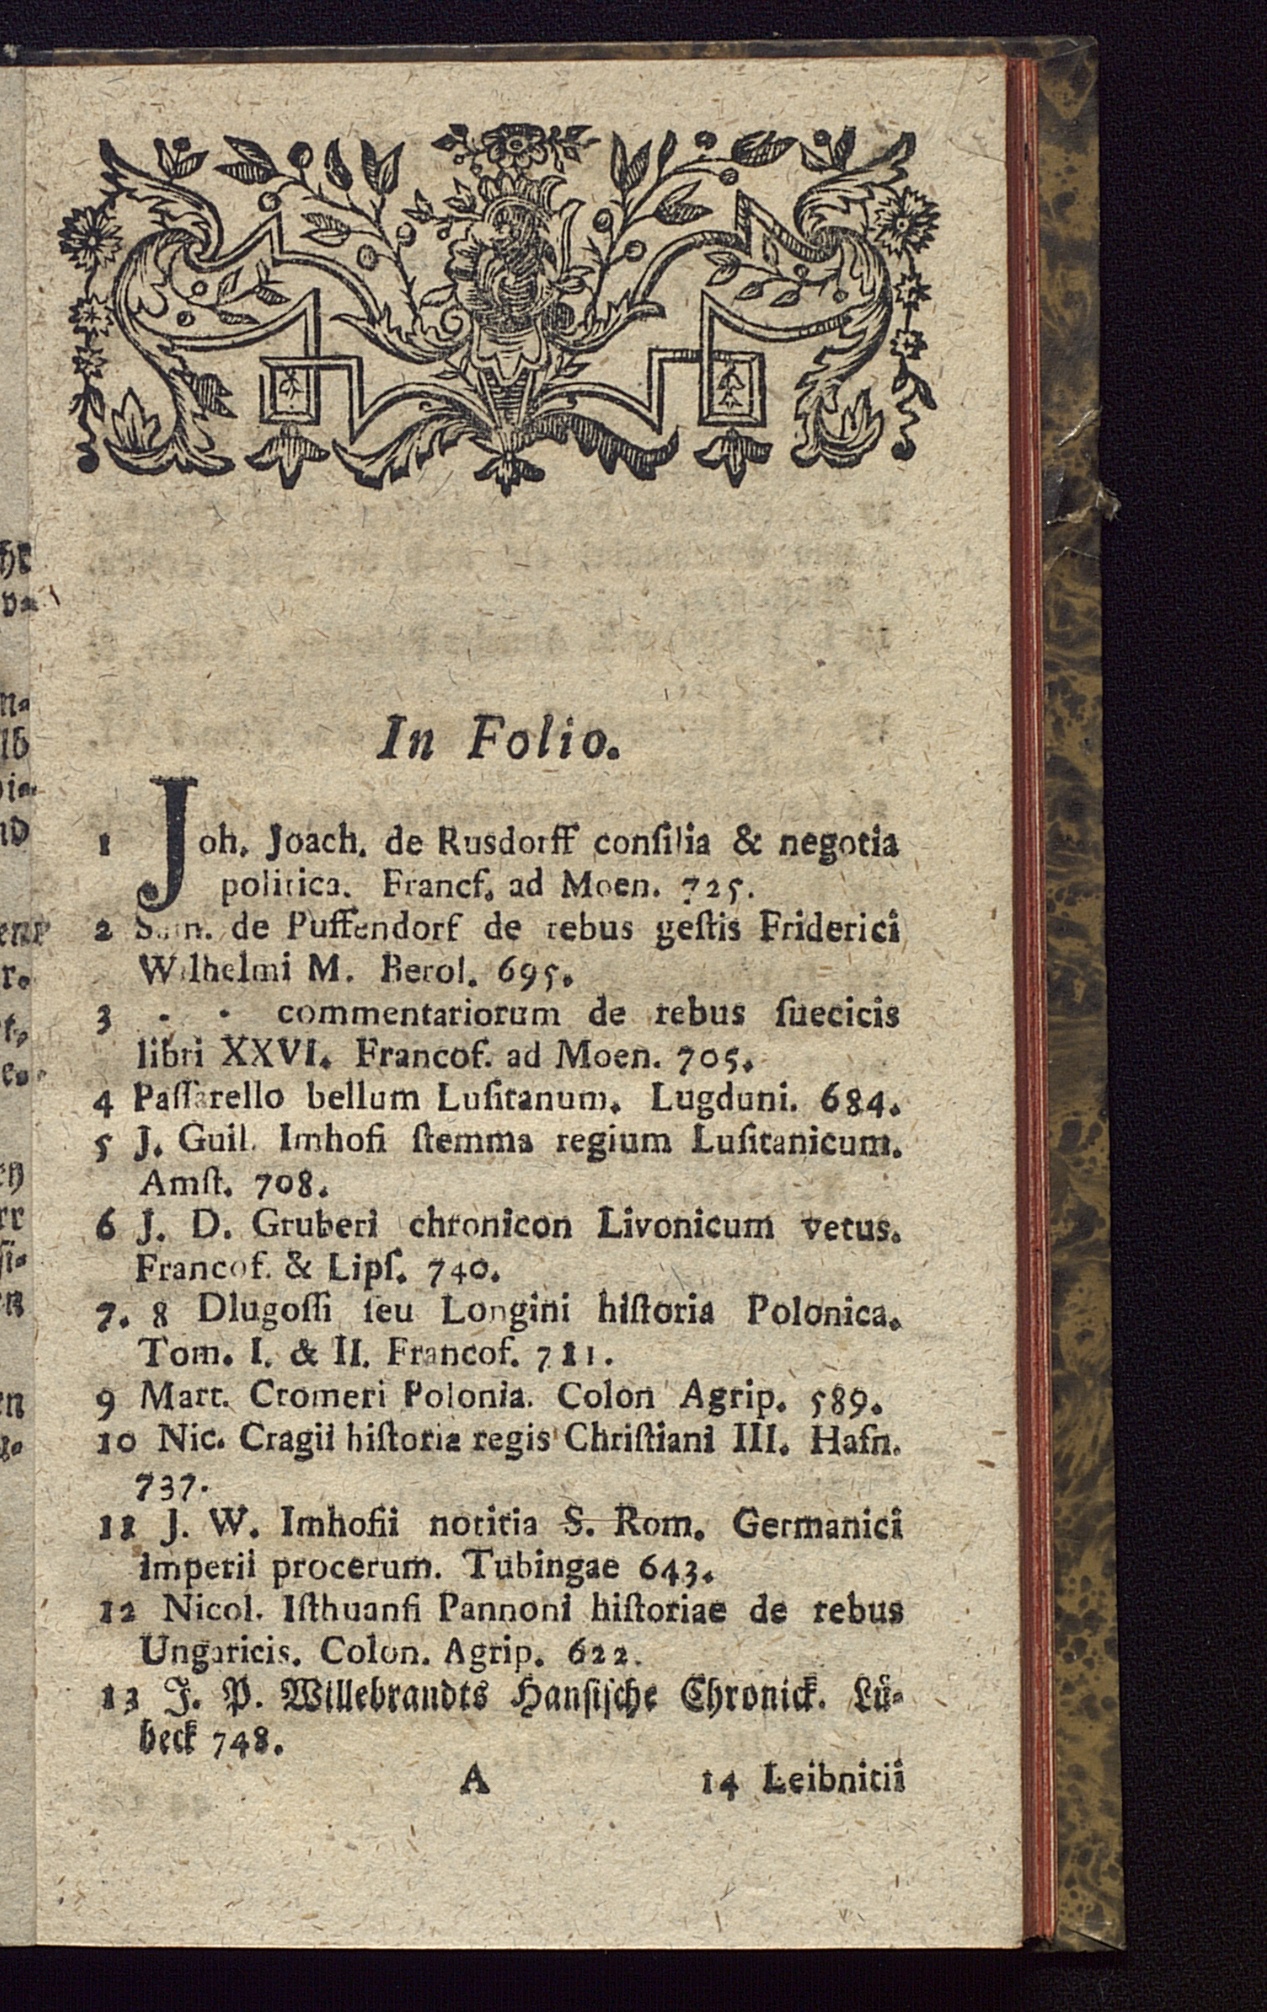 In Folio.
1 Joh. Joach. de Rusdorff conſilia & negotia
politica. Francf. ad Moen. 725.
2 Sam. de Puffendorf de rebus geſtis Friderici
Wilhelmi M. Berol. 695.
3 - - commentariorum de rebus ſuecicis
libri XXVI. Francof. ad Moen. 705.
4 Paſſarello bellum Luſitanum. Lugduni. 684.
5 J. Guil. Imhofi ſtemma regium Luſitanicum.
Amſt. 708.
6 J. D. Gruberi chronicon Livonicum vetus.
Francof. & Lipſ. 740.
7. 8 Dlugoſſi ſeu Longini hiſtoria Polonica.
Tom. I. & II. Francof. 711.
9 Mart. Cromeri Polonia. Colon Agrip. 589.
10 Nic. Cragii hiſtoria regis Chriſtiani III. Hafn.
737.
11 J. W. Imhofii notitia S. Rom. Germanici
imperii procerum. Tubingae 643.
12 Nicol. Iſthuanfi Pannoni hiſtoriae de rebus
Ungaricis. Colon. Agrip. 622.
13 J. P. Willebrandts Hanſiſche Chronick. Lü-
beck 748.
A 14 Leibnitii